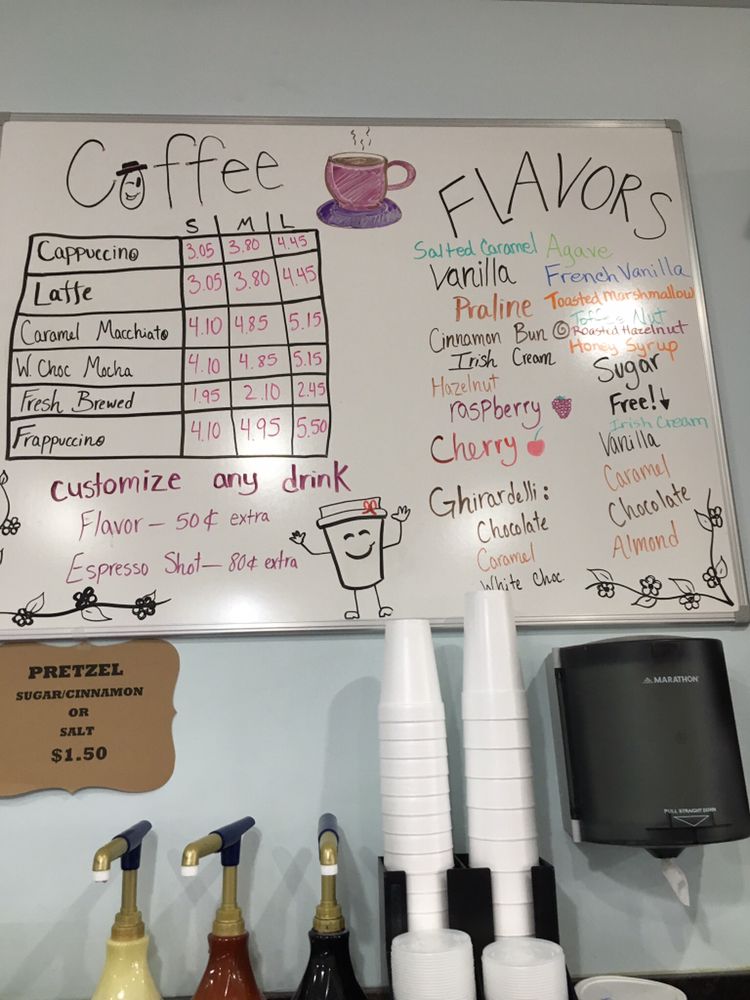 Coffee
S M L
Cappuccino 3.05 3.80 4.45
Latte 3.05 3.80 4.45
Caramel Macchiato 4.10 4.85 5.15
W. Choc Mocha 4.10 4.85 5.15
Fresh Brewed 1.95 2.10 2.45
Frappuccino 4.10 4.95 5.50
customize any drink
Flavor — 50¢ extra
Espresso Shot — 80¢ extra
FLAVORS
Salted Caramel
Vanilla
Praline
Cinnamon Bun
Irish Cream
Hazelnut
raspberry
Cherry
Ghirardelli:
Chocolate
Caramel
White Choc
Agave
French Vanilla
Toasted Marshmallow
Toffee Nut
Roasted Hazelnut
Honey Syrup
Sugar
Free!↓
Irish Cream
Vanilla
Caramel
Chocolate
Almond
PRETZEL
SUGAR/CINNAMON
OR
SALT
$1.50
MARATHON
PULL STRAIGHT DOWN